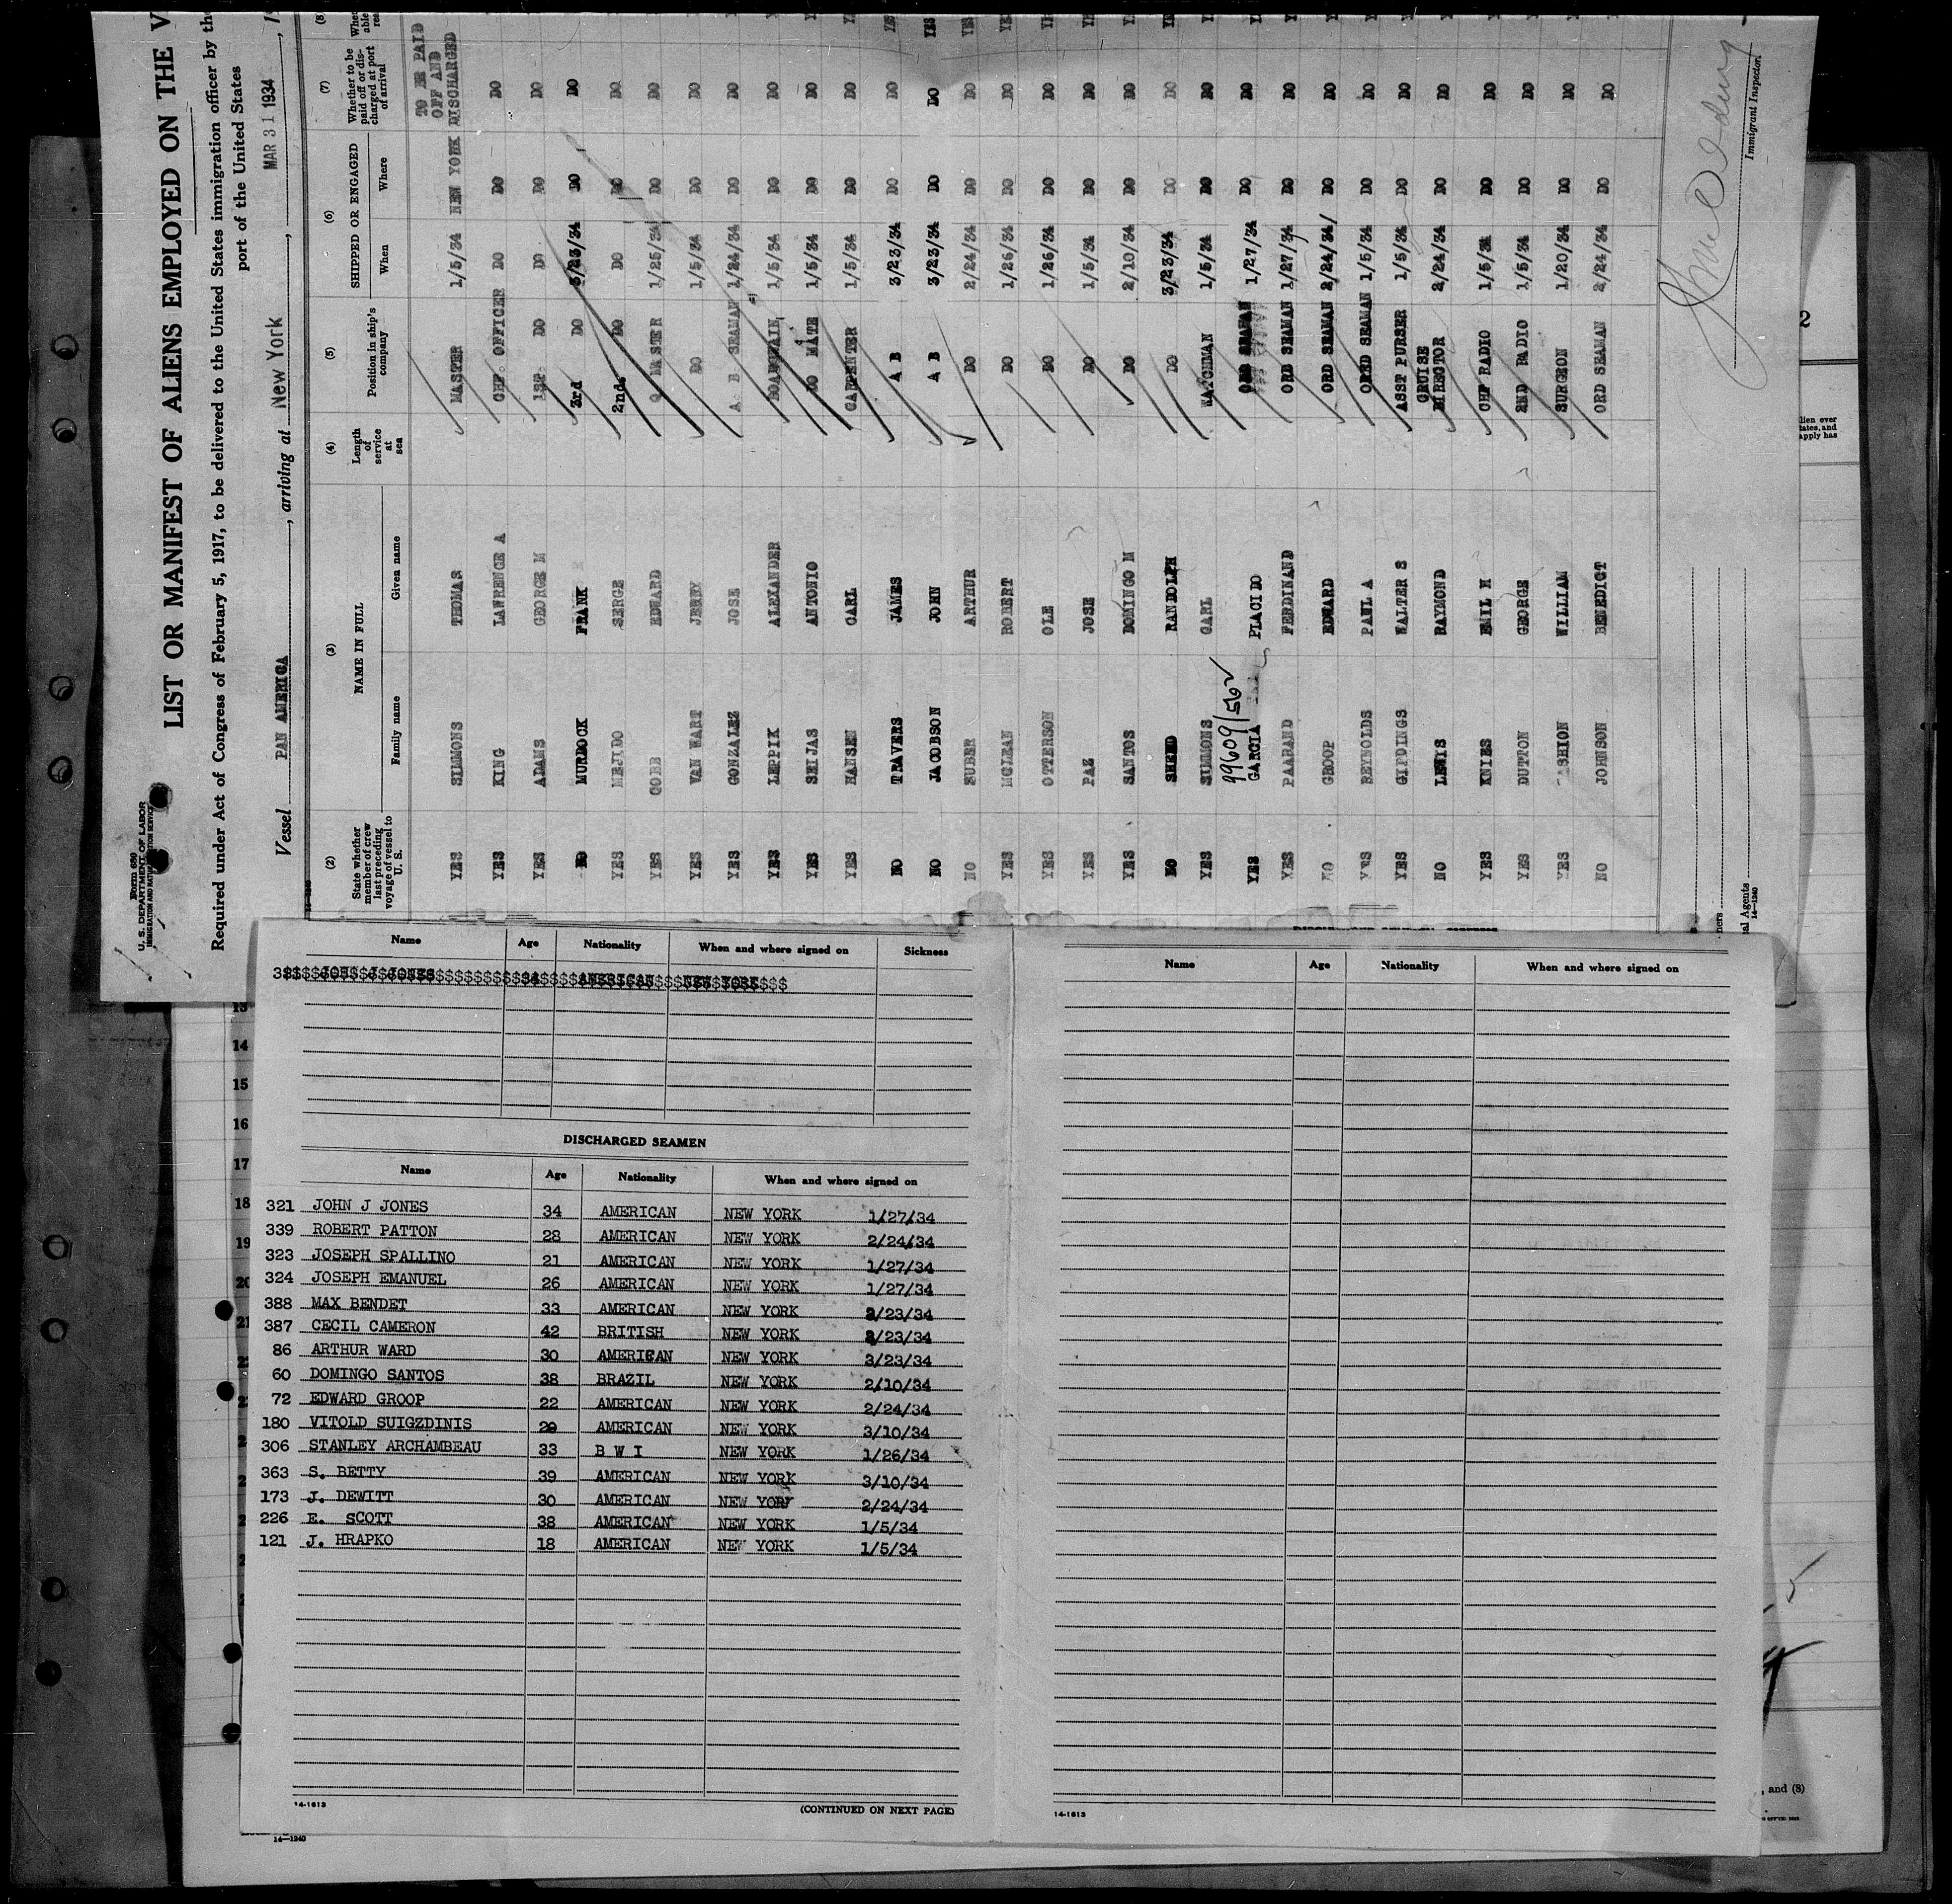 Form 680
U. S. DEPARTMENT OF LABOR
IMMIGRATION AND NATURALIZATION SERVICE
LIST OR MANIFEST OF ALIENS EMPLOYED ON THE V
Required under Act of Congress of February 5, 1917, to be delivered to the United States immigration officer by the
port of the United States
Vessel PAN AMERICA, arriving at New York, MAR 31 1934, 1
(2) (3) (4) (5) (6) (7) (8)
State whether member of crew last preceding voyage of vessel to U. S.
NAME IN FULL
Family name Given name
Length of service at sea
Position in ship's company
SHIPPED OR ENGAGED
When Where
Whether to be paid off or discharged at port of arrival
YES SIMMONS THOMAS MASTER 1/5/34 NEW YORK TO BE PAID OFF AND DISCHARGED
YES KING LAWRENCE A CHF. OFFICER DO DO DO YES
YES ADAMS GEORGE M 1ST DO DO DO DO YES
NO MURDOCK FRANK 3rd DO 3/23/34 DO DO YES
YES MEJIDO SERGE 2nd. DO DO DO DO YES
YES COBB EDWARD Q MASTER 1/25/34 DO DO YES
YES VAN WART JERRY DO 1/5/34 DO DO YES
YES GONZALEZ JOSE A. B SEAMAN 1/24/34 DO DO YES
YES LEPIK ALEXANDER BOATSWAIN 1/5/34 DO DO YES
YES SEIJAS ANTONIO DO MATE 1/5/34 DO DO YES
YES HANSEN CARL CARPENTER 1/5/34 DO DO YES
NO TRAVERS JAMES A B 3/23/34 DO DO YES
NO JACOBSON JOHN A B 3/23/34 DO DO YES
NO SUBER ARTHUR DO 2/24/34 DO DO YES
YES MCLEAN ROBERT DO 1/26/34 DO DO YES
YES OTTERSON OLE DO 1/26/34 DO DO YES
YES PAZ JOSE DO 1/5/34 DO DO YES
YES SANTOS DOMINGO M DO 2/10/34 DO DO YES
NO RANDOLPH DO 3/23/34 DO DO YES
YES SUMMONS CARL WATCHMAN 1/5/34 DO DO YES
99609/562
YES GARCIA PLACIDO ORD SEAMAN 1/27/34 DO DO YES
YES PAABAND FERDINAND ORD SEAMAN 1/27/34 DO DO YES
NO GROOP EDWARD ORD SEAMAN 2/24/34 DO DO YES
YES REYNOLDS PAUL A ORD SEAMAN 1/5/34 DO DO YES
YES GIDDINGS WALTER S ASST PURSER 1/5/34 DO DO YES
NO LEWIS RAYMOND CRUISE DIRECTOR 2/24/34 DO DO YES
YES KNIES EMIL H CHF RADIO 1/5/34 DO DO YES
YES DUTTON GEORGE 2ND RADIO 1/5/34 DO DO YES
YES WILLIAM SURGEON 1/20/34 DO DO
NO JOHNSON BENEDICT ORD SEAMAN 2/24/34 DO DO
Immigrant Inspector.
Name Age Nationality When and where signed on Sickness
JOHN J JONES 34 AMERICAN NEW YORK
DISCHARGED SEAMEN
Name Age Nationality When and where signed on
321 JOHN J JONES 34 AMERICAN NEW YORK 1/27/34
339 ROBERT PATTON 28 AMERICAN NEW YORK 2/24/34
323 JOSEPH SPALLINO 21 AMERICAN NEW YORK 1/27/34
324 JOSEPH EMANUEL 26 AMERICAN NEW YORK 1/27/34
388 MAX BENDET 33 AMERICAN NEW YORK 3/23/34
387 CECIL CAMERON 42 BRITISH NEW YORK 3/23/34
86 ARTHUR WARD 30 AMERICAN NEW YORK 3/23/34
60 DOMINGO SANTOS 38 BRAZIL NEW YORK 2/10/34
72 EDWARD GROOP 22 AMERICAN NEW YORK 2/24/34
180 VITOLD SUIGZDINIS 29 AMERICAN NEW YORK 3/10/34
306 STANLEY ARCHAMBEAU 33 B W I NEW YORK 1/26/34
363 S. BETTY 39 AMERICAN NEW YORK 3/10/34
173 J. DEWITT 30 AMERICAN NEW YORK 2/24/34
226 E. SCOTT 38 AMERICAN NEW YORK 1/5/34
121 J. HRAPKO 18 AMERICAN NEW YORK 1/5/34
14-1613
(CONTINUED ON NEXT PAGE)
14-1240
Name Age Nationality When and where signed on
14-1613
13
14
15
16
17
18
19
, and (8)